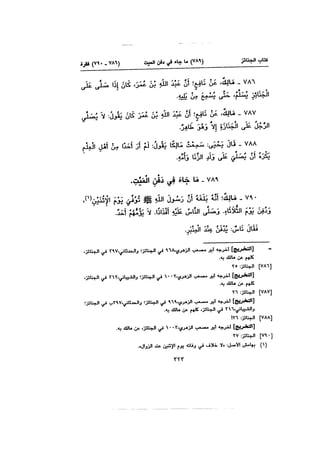 كتاب الجنائز (٧٨٩) ما جاء في دفن الميت (٧٨٦ - ٧٩٠) فقرة
٧٨٦ - مَالِكٌ، عَنْ نَافِعٍ؛ أَنَّ عَبْدَ اللَّهِ بْنَ عُمَرَ، كَانَ إِذَا صَلَّى عَلَى
الْجَنَائِزِ يُسَلِّمُ، حَتَّى يُسْمِعَ مَنْ يَلِيهِ.
٧٨٧ - مَالِكٌ، عَنْ نَافِعٍ؛ أَنَّ عَبْدَ اللَّهِ بْنَ عُمَرَ كَانَ يَقُولُ: لَا يُصَلِّي
الرَّجُلُ عَلَى الْجَنَازَةِ إِلَّا وَهُوَ طَاهِرٌ.
٧٨٨ - قَالَ يَحْيَى: سَمِعْتُ مَالِكًا يَقُولُ: لَمْ أَرَ أَحَدًا مِنْ أَهْلِ الْعِلْمِ
يَكْرَهُ أَنْ يُصَلَّى عَلَى وَلَدِ الزِّنَا وَأُمِّهِ.
٧٨٩ - مَا جَاءَ فِي دَفْنِ الْمَيِّتِ.
٧٩٠ - مَالِكٌ؛ أَنَّهُ بَلَغَهُ أَنَّ رَسُولَ اللَّهِ ﷺ تُوُفِّيَ يَوْمَ الْإِثْنَيْنِ(١)،
وَدُفِنَ يَوْمَ الثُّلَاثَاءِ، وَصَلَّى النَّاسُ عَلَيْهِ أَفْذَاذًا. لَا يَؤُمُّهُمْ أَحَدٌ.
فَقَالَ نَاسٌ: يُدْفَنُ عِنْدَ الْمِنْبَرِ.
= [التخريج] أخرجه أبو مصعب الزهري، ٩٦٨ في الجنائز؛ والحدثاني، ٣٩٧ في الجنائز،
كلهم عن مالك به.
[٧٨٦] الجنائز: ٢٥
[التخريج] أخرجه أبو مصعب الزهري، ١٠٠٢ في الجنائز؛ والشيباني، ٣١٢ في الجنائز،
كلهم عن مالك به.
[٧٨٧] الجنائز: ٢٦
[التخريج] أخرجه أبو مصعب الزهري، ٩٦٩ في الجنائز؛ والحدثاني، ٣٩٧ب في الجنائز؛
والشيباني، ٣١٦ في الجنائز، كلهم عن مالك به.
[٧٨٨] الجنائز: ٢٦أ
[التخريج] أخرجه أبو مصعب الزهري، ١٠٠٣ في الجنائز، عن مالك به.
[٧٩٠] الجنائز: ٢٧
(١) بهامش الأصل: «لا خلاف في وفاته يوم الإثنين عند الزوال».
٣٢٣